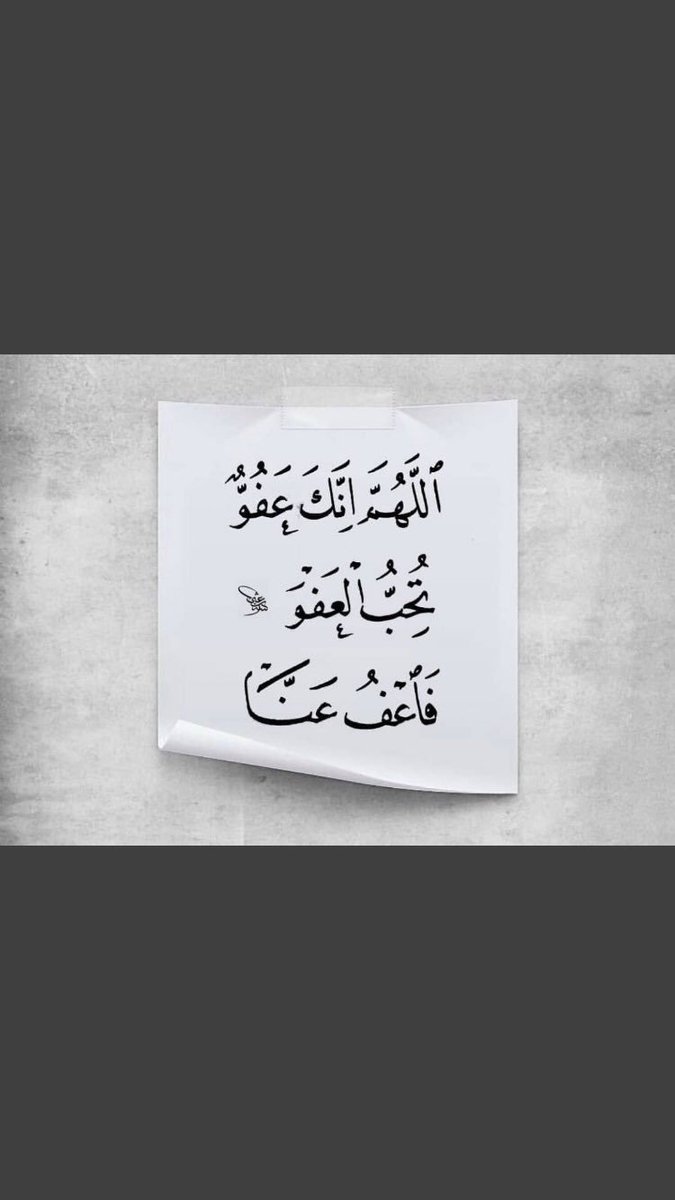 ٱللَّهُمَّ اِنَّكَ عَفُوٌّ
تُحِبُّ ٱلْعَفْوَ
فَٱعْفُ عَنَّا